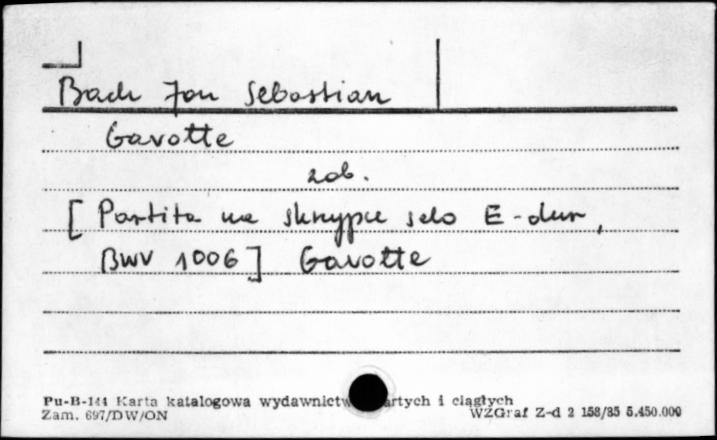 Bach Jan Sebastian
Gavotte
zob.
[Partita na skrzypce solo E-dur,
BWV 1006] Gavotte
Pu-B-144 Karta katalogowa wydawnictw zwartych i ciągłych
Zam. 697/DW/ON WZGraf Z-d 2 158/85 5.450.000